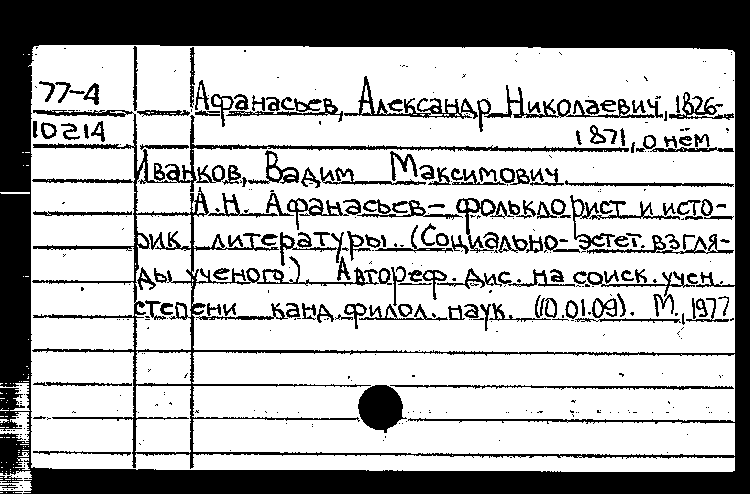 77-4 Афанасьев, Александр Николаевич, 1826-
10214 1871, о нём
Иванков, Вадим Максимович.
А.Н. Афанасьев – фольклорист и исто-
рик литературы. (Социально-эстет. взгля-
ды ученого). Автореф. дис. на соиск. учен.
степени канд. филол. наук. (10.01.09). М., 1977